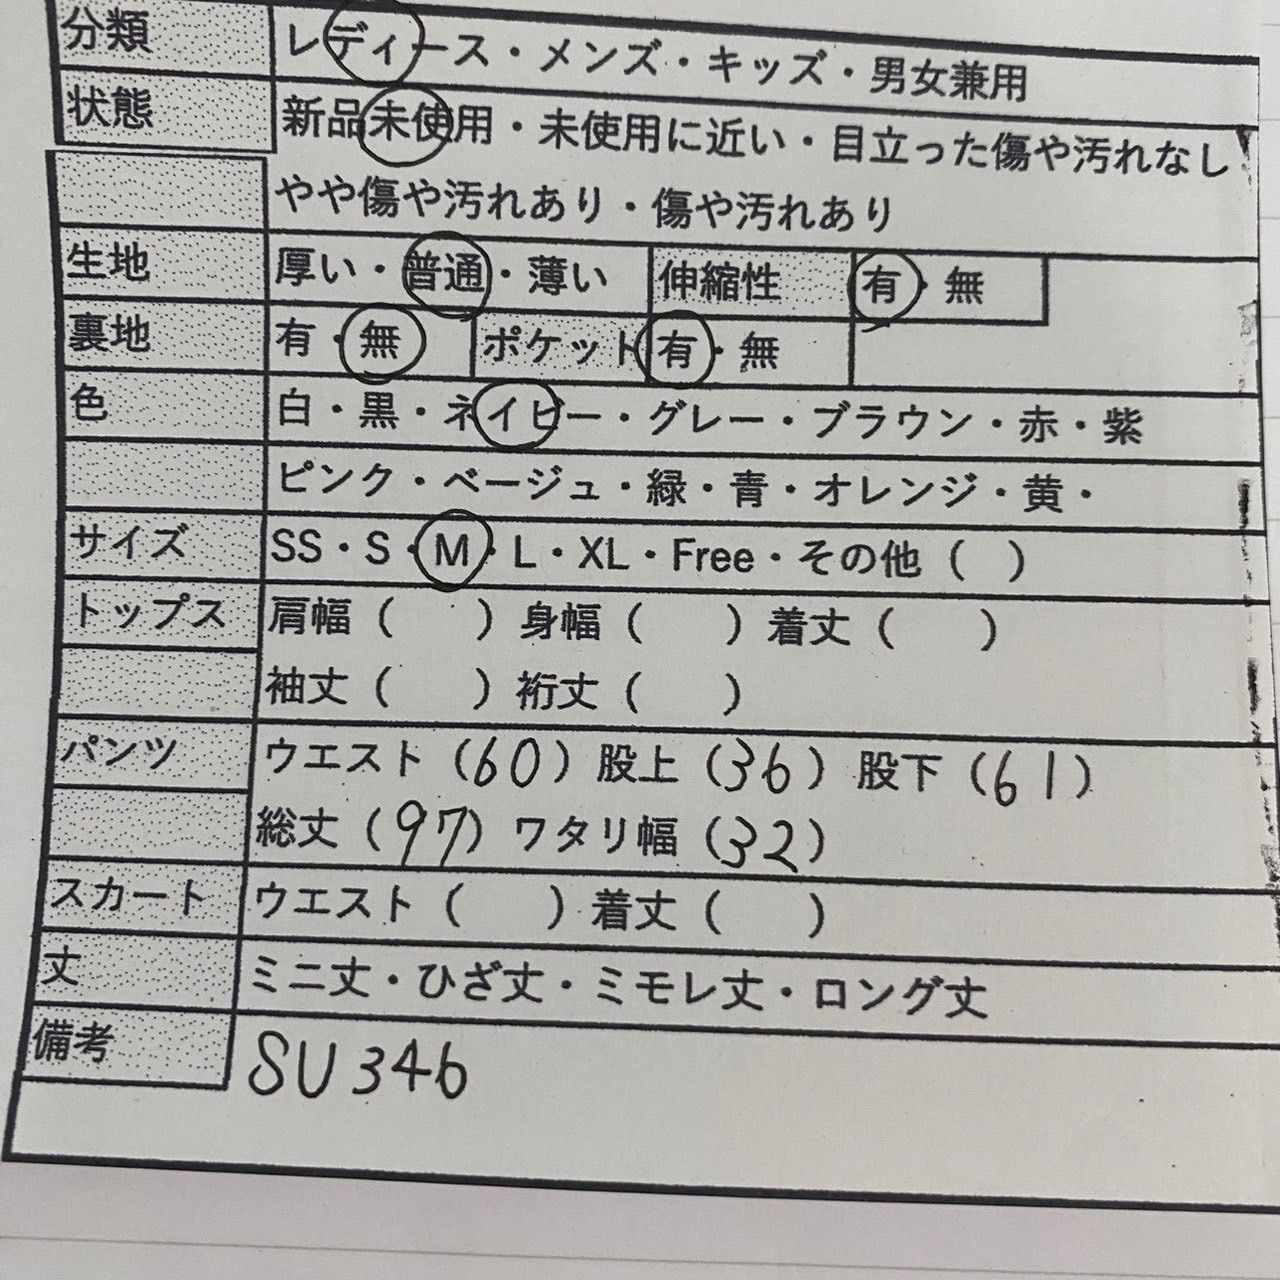 分類 レディース・メンズ・キッズ・男女兼用
状態 新品未使用・未使用に近い・目立った傷や汚れなし
やや傷や汚れあり・傷や汚れあり
生地 厚い・普通・薄い 伸縮性 有・無
裏地 有・無 ポケット 有・無
色 白・黒・ネイビー・グレー・ブラウン・赤・紫
ピンク・ベージュ・緑・青・オレンジ・黄・
サイズ SS・S・M・L・XL・Free・その他（ ）
トップス 肩幅（ ）身幅（ ）着丈（ ）
袖丈（ ）裄丈（ ）
パンツ ウエスト（60）股上（36）股下（61）
総丈（97）ワタリ幅（32）
スカート ウエスト（ ）着丈（ ）
丈 ミニ丈・ひざ丈・ミモレ丈・ロング丈
備考 SU346